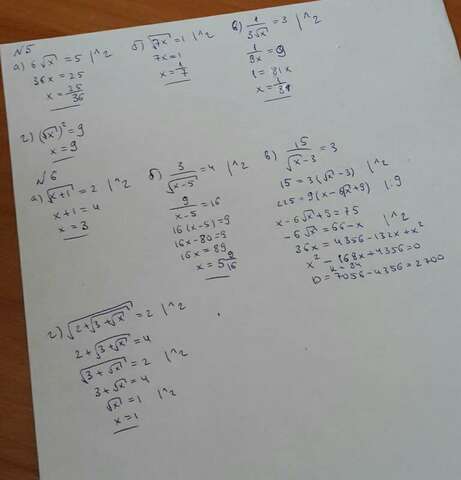 N5
а) 6√x = 5 |^2
36x = 25
x = 25/36
б) √7x = 1 |^2
7x = 1
x = 1/7
в) 1/(3√x) = 3 |^2
1/(9x) = 9
1 = 81x
x = 1/81
г) (√x)² = 9
x = 9
N6
а) √(x+1) = 2 |^2
x+1 = 4
x = 3
б) 3/√(x-5) = 4 |^2
9/(x-5) = 16
16(x-5) = 9
16x-80 = 9
16x = 89
x = 5 9/16
в) 15/(√x-3) = 3
15 = 3(√x-3) |^2
225 = 9(x-6√x+9) |:9
x-6√x+9 = 75
-6√x = 66-x |^2
36x = 4356-132x+x²
x²-168x+4356=0
k = 84
D = 7056-4356 = 2700
г) √(2+√(3+√x)) = 2 |^2
2+√(3+√x) = 4
√(3+√x) = 2 |^2
3+√x = 4
√x = 1 |^2
x = 1